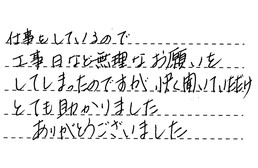 仕事をしているので
工事日など無理なお願いを
してしまったのですが、快く聞いていただけ
とても助かりました
ありがとうございました